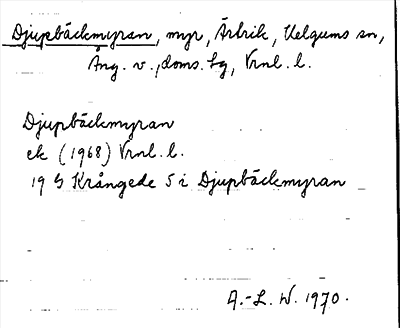 Djupbäckmyran, myr, Ärtrik, Helgums sn,
Ång. v., doms. sg, Vrnl. l.
Djupbäckmyran
ek (1968) Vrnl. l.
19 G Krångede 5 i Djupbäckmyran
A.-L. W. 1970.